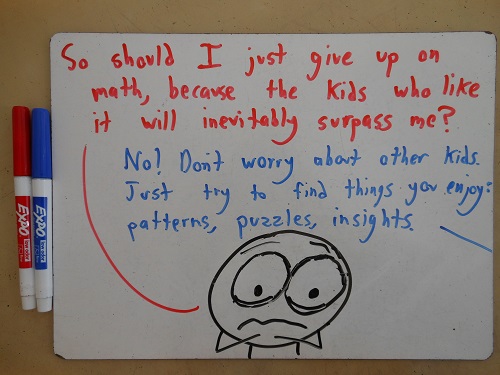 So should I just give up on
math, because the kids who like
it will inevitably surpass me?
No! Don't worry about other kids.
Just try to find things you enjoy:
patterns, puzzles, insights.
EXPO
EXPO